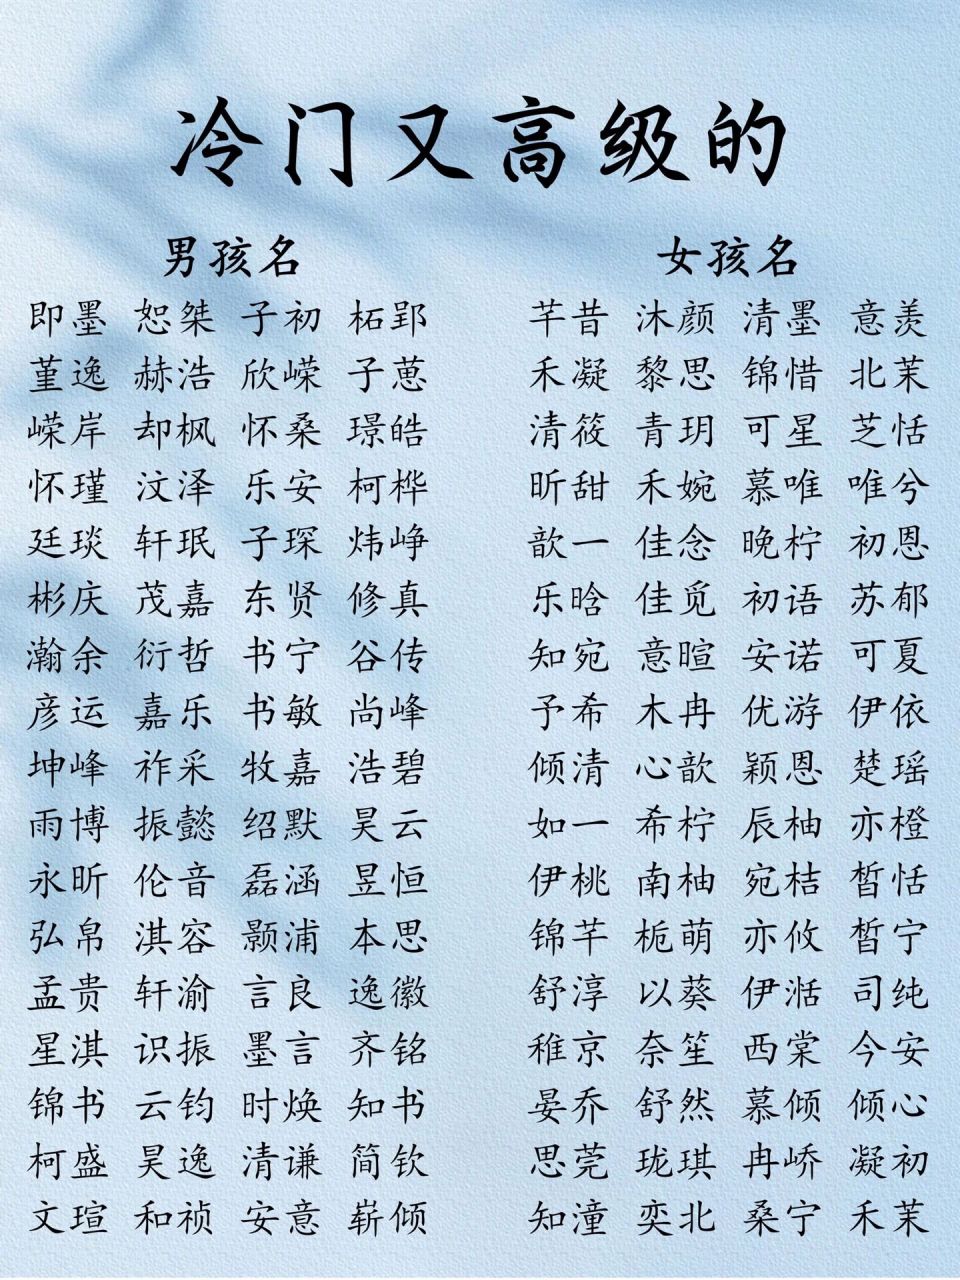 冷门又高级的
男孩名 女孩名
即墨 恕桀 子初 柘郢 芊昔 沐颜 清墨 意羡
堇逸 赫浩 欣嵘 子葸 禾凝 黎思 锦惜 北茉
嵘岸 却枫 怀桑 璟皓 清筱 青玥 可星 芝恬
怀瑾 汶泽 乐安 柯桦 昕甜 禾婉 慕唯 唯兮
廷琰 轩珉 子琛 炜峥 歆一 佳念 晚柠 初恩
彬庆 茂嘉 东贤 修真 乐晗 佳觅 初语 苏郁
瀚余 衍哲 书宁 谷传 知宛 意暄 安诺 可夏
彦运 嘉乐 书敏 尚峰 予希 木冉 优游 伊依
坤峰 祚采 牧嘉 浩碧 倾清 心歆 颖恩 楚瑶
雨博 振懿 绍默 昊云 如一 希柠 辰柚 亦橙
永昕 伦音 磊涵 昱恒 伊桃 南柚 宛桔 皙恬
弘帛 淇容 颢浦 本思 锦芊 栀萌 亦攸 皙宁
孟贵 轩渝 言良 逸徽 舒淳 以葵 伊湉 司纯
星淇 识振 墨言 齐铭 稚京 奈笙 西棠 今安
锦书 云钧 时焕 知书 晏乔 舒然 慕倾 倾心
柯盛 昊逸 清谦 简钦 思莞 珑琪 冉峤 凝初
文瑄 和祯 安意 崭倾 知潼 奕北 桑宁 禾茉